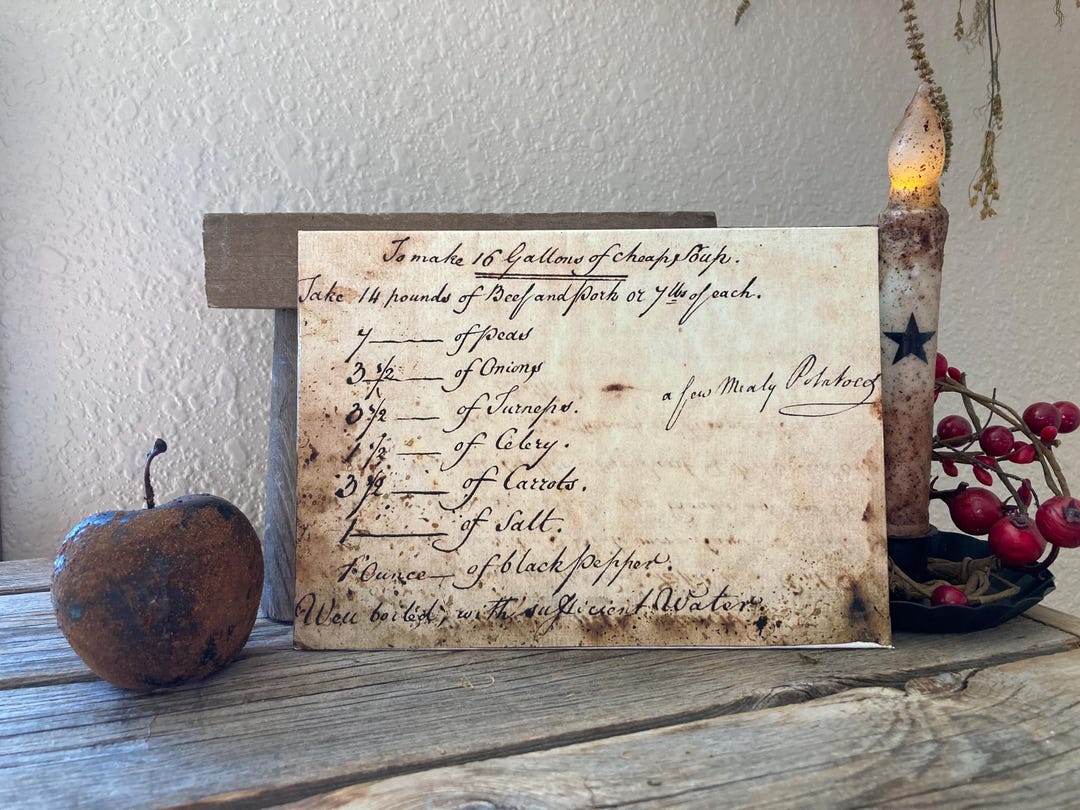 To make 16 Gallons of cheap Soup.
Take 14 pounds of Beef and Pork or 7 lbs of each.
7 —— of Peas
3 1/2 —— of Onions
3 1/2 — of Turneps.
1 1/2 — of Celery.
3 1/2 —— of Carrots.
1 —— of Salt.
1 Ounce — of black Pepper.
a few Mealy Potatoes
Well boiled, with sufficient Water.